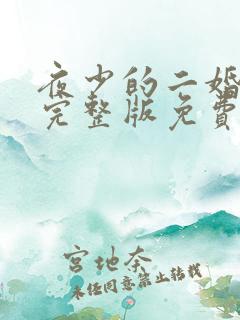 夜少的二婚
完整版免费
宫地奈
未经同意禁止转载